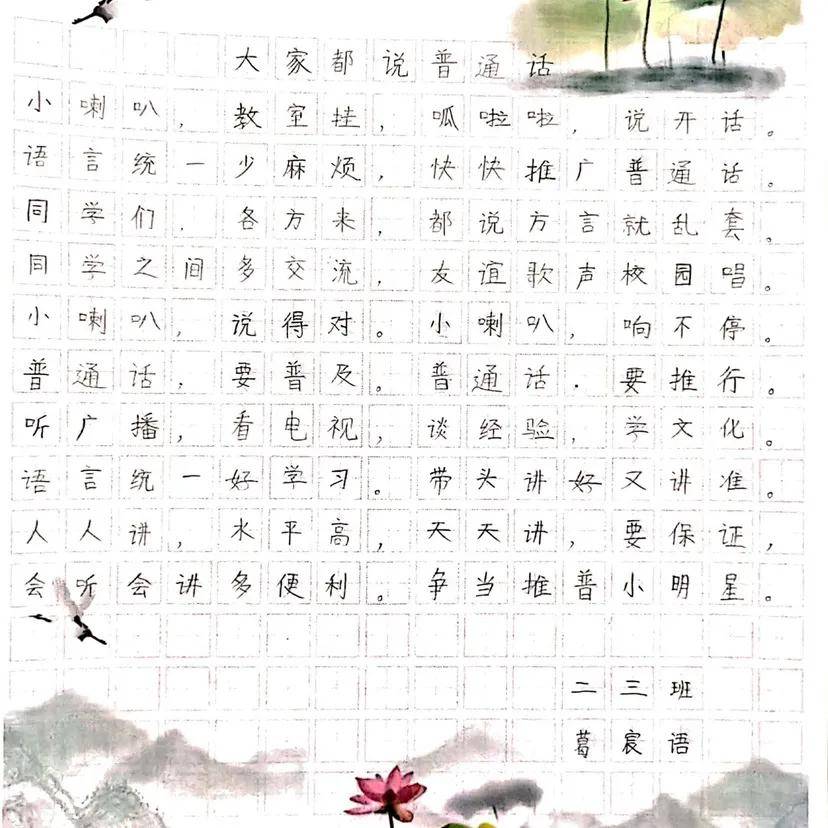 大家都说普通话
小喇叭，教室挂，呱啦啦，说开话。
语言统一少麻烦，快快推广普通话。
同学们，各方来，都说方言就乱套。
同学之间多交流，友谊歌声校园唱。
小喇叭，说得对。小喇叭，响不停。
普通话，要普及。普通话．要推行。
听广播，看电视，谈经验，学文化。
语言统一好学习。带头讲好又讲准。
人人讲，水平高，天天讲，要保证，
会听会讲多便利。争当推普小明星。
二三班
葛宸语